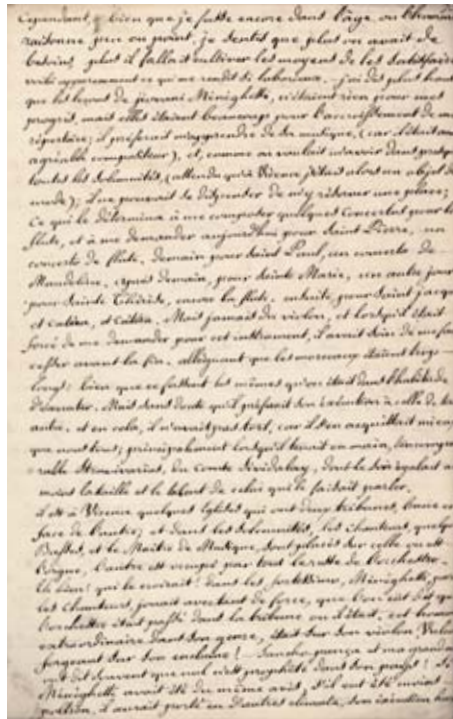 Cependant, bien que je fusse encore dans l'âge, où l'homme
raisonne peu ou point, je sentis que plus on avait de
besoins, plus il fallait cultiver les moyens de les satisfaire
voilà apparemment ce qui me rendit si laborieux. – j'ai dit plus haut
que les leçons de Giovanni Ménighetti, n'étaient rien pour mes
progrès, mais elles étaient beaucoup pour l'accroissement de mon
répertoire; il préférait m'apprendre de sa musique, (car c'était un
agréable compositeur), et, comme on voulait m'avoir dans presque
toutes les solemnités, (attendu qu'à Vicence j'étais alors un objet de
mode); il ne pouvait se dispenser de m'y réserver une place;
Ce qui le détermina à me composer quelques Concertos pour la
flute, et à me demander aujourd'hui pour Saint Pierre, un
concerto de flute, demain pour Saint Paul, un concerto de
Mandoline, après demain, pour Sainte Marie, un autre jour
pour Sainte Thérèse, encore la flute, ensuite, pour Saint Jacques
et cætera, et cætera. Mais jamais du violon, et lorsqu'il était
forcé de me demander pour cet instrument, il avait soin de me faire
cesser avant la fin, alléguant que les morceaux étaient trop
longs! bien que ce fussent les mêmes qu'on était dans l'habitude
d'écouter. Mais sans doute qu'il préférait son exécution à celle de tout
autre, et en cela, il n'avait pas tort, car il s'en acquittait mieux
que nous tous; principalement lorsqu'il tenait en main, l'incompa-
rable Stradivarius, du comte dont le son égalait au
moins la taille et le talent de celui qui le faisait parler.
il est à Vicence quelques églises qui ont deux tribunes, l'une en
face de l'autre; et dans les solemnités, les chanteurs, quelques
Basses, et le Maître de Musique, sont placés sur celle où est
l'orgue, l'autre est occupé par tout le reste de l'orchestre.
Eh bien! qui le croirait! dans les fortissimo, Ménighetti, pour
les chanteurs, jouait avec tant de force, que l'on eût dit que
l'orchestre était passé dans la tribune où il était. cet homme
extraordinaire dans son genre, était sur son violon, Vulcain
forgeant sur son enclume! – Sancho pança et ma grand'mère
ont dit souvent que nul n'est prophète dans son pays! Si
Ménighetti avait été du même avis, s'il eut été moins
poltron, il aurait porté en d'autres climats, son exécution